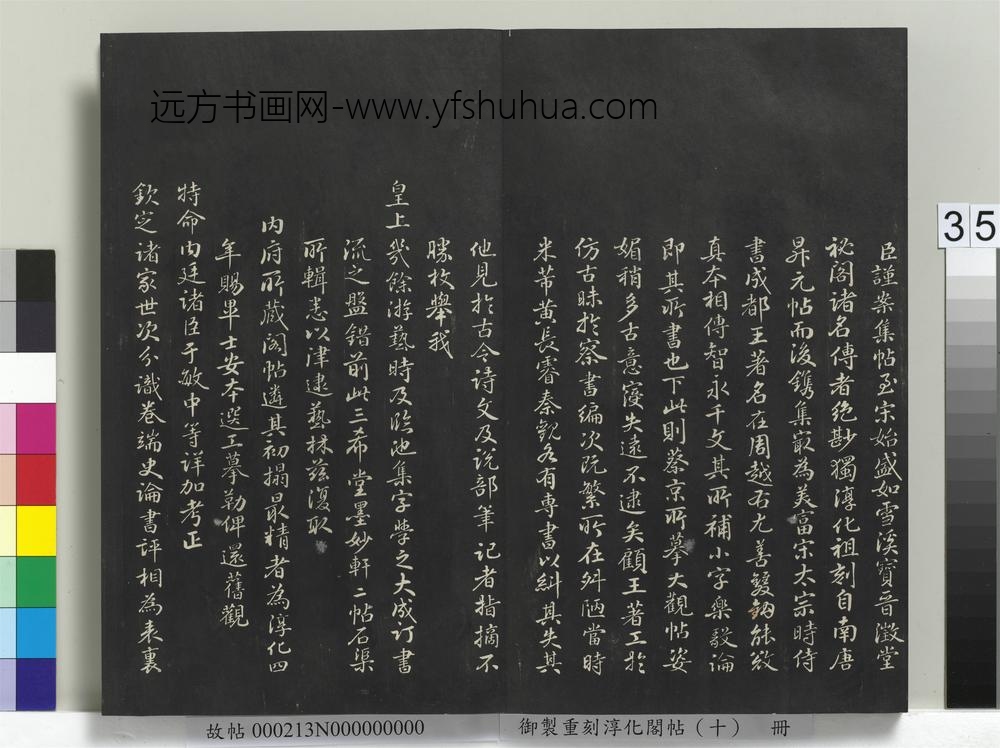 远方书画网-www.yfshuhua.com
臣謹案集帖至宋始盛如雪溪寶晉澂堂
祕閣諸名傳者絶尠獨淳化祖刻自南唐
昇元帖而後鐫集㝡為美富宋太宗時侍
書成都王著名在周越右尤善雙鉤能效
真本相傳智永千文其所補小字樂毅論
即其所書也下此則蔡京所摹大觀帖姿
媚稍多古意寖失遠不逮矣顧王著工於
仿古昧於察書編次既繁所在舛陋當時
米芾黃長睿秦觀各有專書以糾其失其
他見於古今詩文及說部筆記者指摘不
勝枚舉我
皇上幾餘游藝時及臨池集字學之大成訂書
流之盤錯前此三希堂墨妙軒二帖石渠
所輯悉以津逮藝林茲復取
內府所藏閣帖遴其初搨最精者為淳化四
年賜畢士安本選工摹勒俾還舊觀
特命內廷諸臣于敏中等詳加考正
欽定諸家世次分識卷端史論書評相為表裏
35
故帖 000213N000000000
御製重刻淳化閣帖（十） 冊